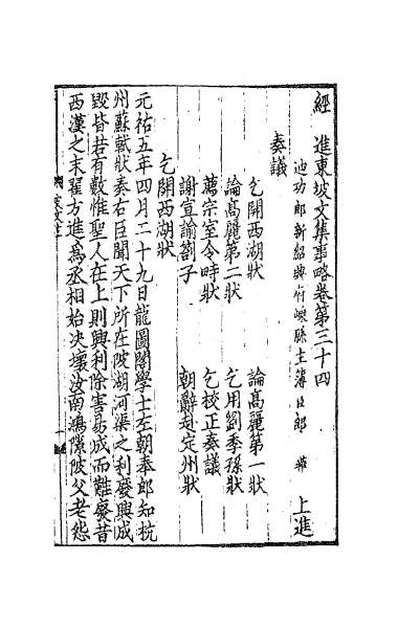 經　進東坡文集事略卷第三十四
迪功郎新紹興府嵊縣主簿臣郎　曄　上進
奏議
乞開西湖狀　論高麗第一狀
論高麗第二狀　乞用劉季孫狀
薦宗室令畤狀　乞校正奏議
謝宣諭劄子　朝辭赴定州狀
乞開西湖狀
元祐五年四月二十九日龍圖閣學士左朝奉郎知杭
州蘇軾狀奏右臣聞天下所在陂湖河渠之利廢興成
毀皆若有數惟聖人在上則興利除害易成而難廢昔
西漢之末翟方進為丞相始決壞汝南鴻隙陂父老怨